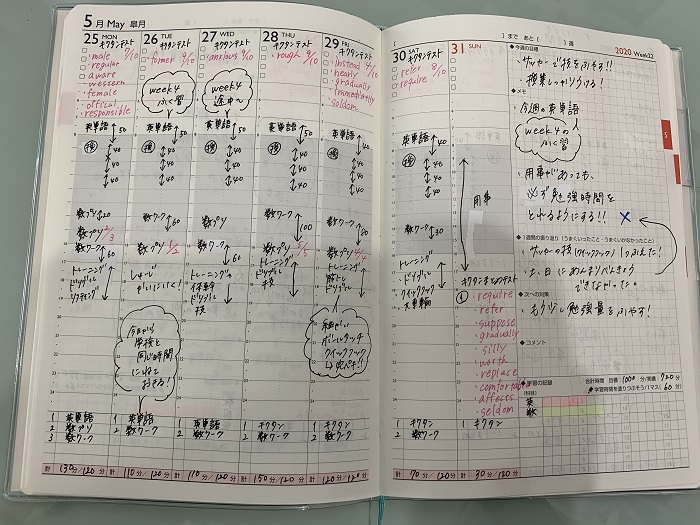 5月 May 皐月
25 MON
male
regular
aware
western
female
official
responsible
英単語 50
授
40
40
40
40
数プリ 20
数プリ 2/3
数ワーク 60
トレーニング
ドリブル
リフティング
今日から
学校と
同じ時間
にねて
おきる!
1 英単語
2 数プリ
3 数ワーク
計 130分/120分
26 TUE
キクタンテスト
former 9/10
week4
ふく習
英単語 50
授
40
40
40
40
数ワーク 60
数プリ 1/2
1 英単語
2 数ワーク
計 110分/120分
27 WED
キクタンテスト
anxious 9/10
week4
途中〜
英単語 50
授
40
40
40
40
数プリ
数ワーク 60
トレーニング
ドリブル
技
1 英単語
2 数ワーク
計 110分/120分
28 THU
キクタンテスト
rough 9/10
英単語 50
授
40
40
40
40
数ワーク 100
トレーニング
ドリブル
技
1 英単語
2 数ワーク
計 150分/120分
29 FRI
キクタンテスト
instead 4/10
nearly
gradually
immediately
seldom
英単語 40
授
40
40
40
40
数ワーク 80
トレーニング
ドリブル
細かい
ボールタッチ
クイックフック
1 キクタン
2 数ワーク
計 120分/120分
30 SAT
キクタンテスト
refer 8/10
require
英単語 40
授
40
40
40
数ワーク 30
トレーニング
ドリブル
クイックフック
1 キクタン
2 数ワーク
計 70分/120分
31 SUN
用事
キクタンまとめテスト
require
refer
suppose
gradually
silly
worth
replace
comfortable
affects
seldom
1 キクタン
計 30分/120分
】まで あと〔 〕週
2020 Week22
今週の目標
サッカーで技をふやす!!
授業しっかりうける!
メモ
今週の英単語
week4の
ふく習
用事があっても、
必ず勉強時間を
とれるようにする!!
1週間の振り返り(うまくいったこと・うまくいかなかったこと)
サッカーの技(クイックフック)1つふえた!
土、日にあんまりべんきょう
できなかった。
次への対策
もう少し勉強量をふやす!
コメント
学習の記録
合計時間 目標 1000分/実績 720分
学習時間を塗りつぶそう/1マス(60分)
(科目)
英
数
5